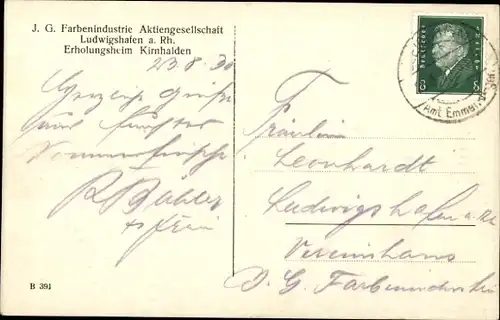 J. G. Farbenindustrie Aktiengesellschaft
Ludwigshafen a. Rh.
Erholungsheim Kirnhalden
23.8.30
Herzliche Grüße
aus
Sommerfrische
R. Bähler
Fräulein
Leonhardt
Ludwigshafen a. Rh
Vereinshaus
J. G. Farbenindustrie
B 391
Deutsches Reich
8 8
Amt Emmen